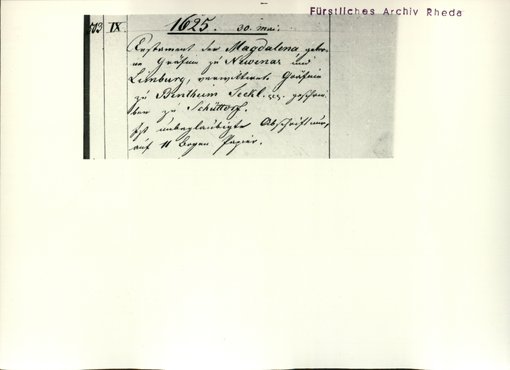 Fürstliches Archiv Rheda
503 IX 1625. 30. Mai.
Testament der Magdalena gebor-
ne Gräfin zu Nuenar und
Limburg, verwittwete Gräfin
zu Bentheim Teckl. geschrie-
ben zu Schüttorf.
Ist unbeglaubigte Abschrift nur,
auf 11 Bogen Papier.